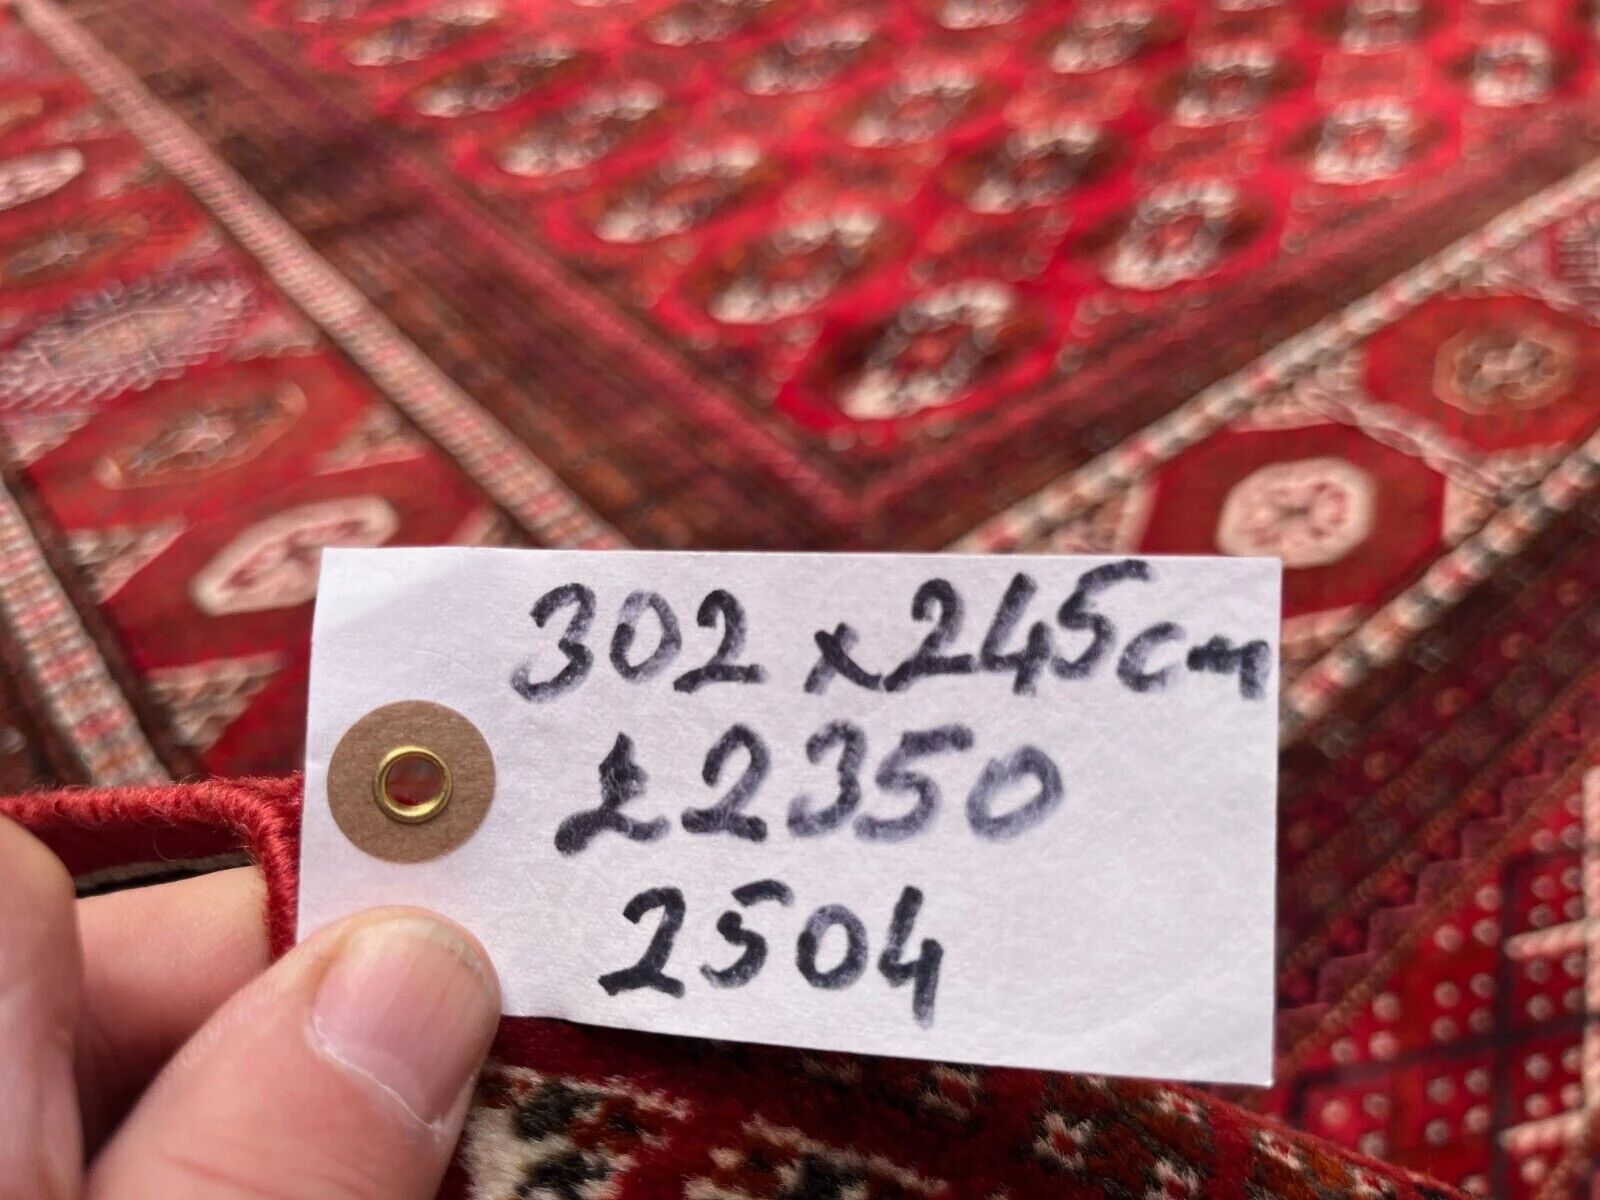 302 x 245cm
£2350
2504